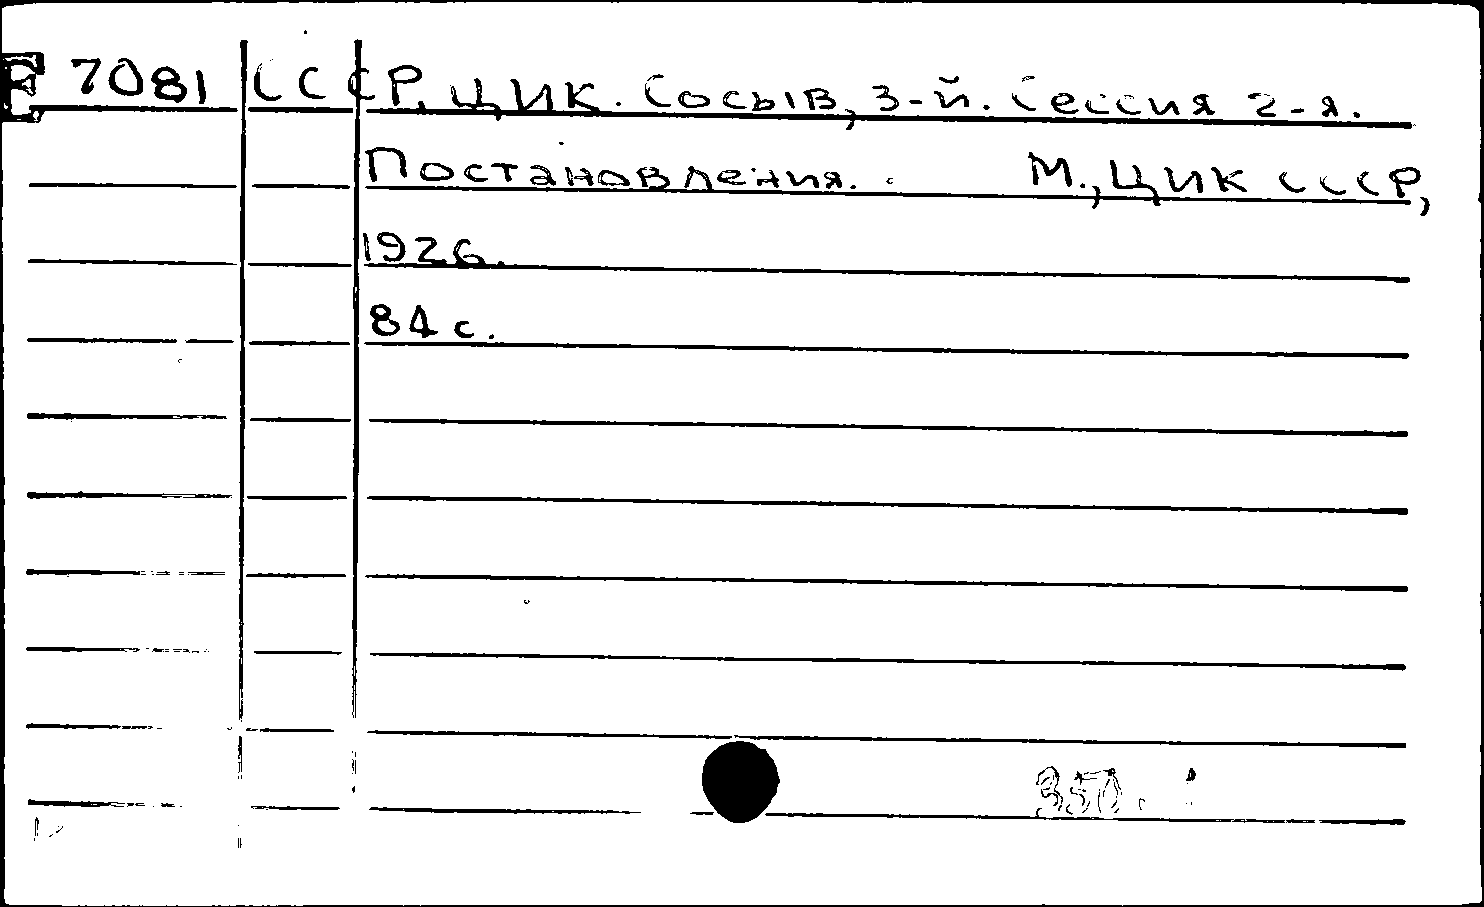 E 7081 СССР. ЦИК. Сосыв, 3-й. Сессия 2-я.
Постановления. М., ЦИК СССР,
1926.
84 с.
350.